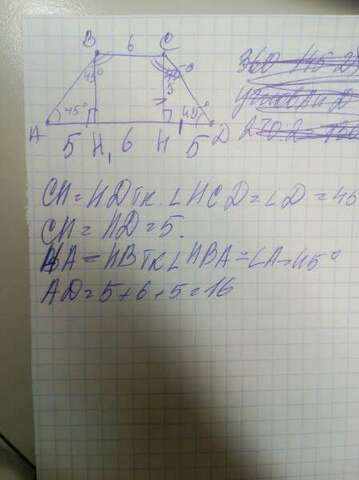 B 6 C
45° 45° 5
A 45° 45° D
5 H₁ 6 H 5
CH = HD тк. ∠HCD = ∠D = 45
CH = HD = 5.
HA = HB тк ∠HBA = ∠A = 45°
AD = 5 + 6 + 5 = 16